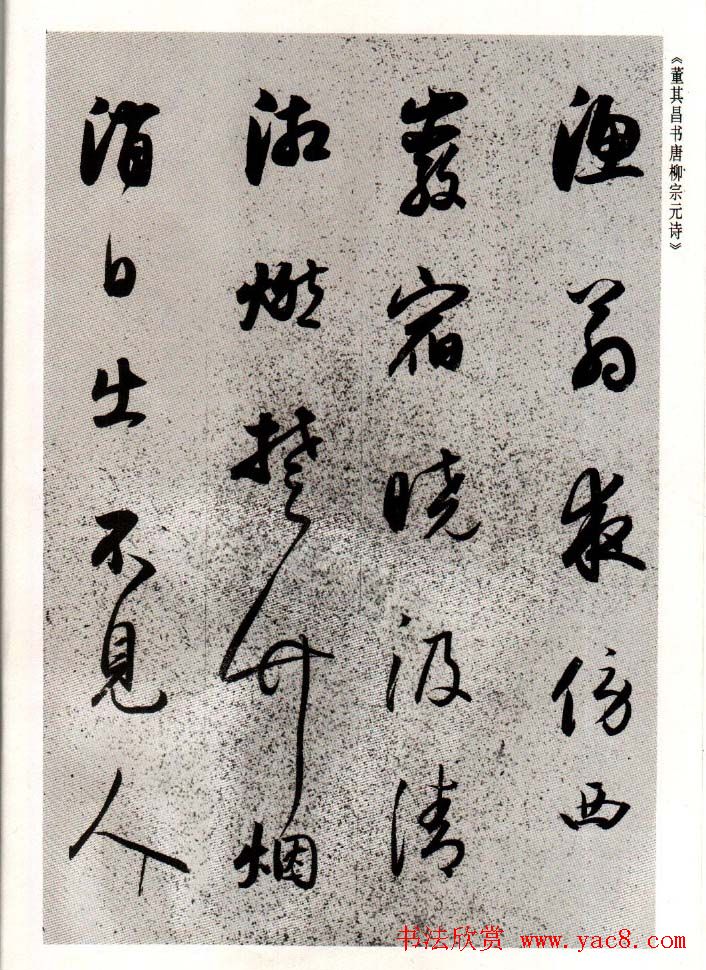 《董其昌书唐柳宗元诗》
漁翁夜傍西
巖宿曉汲清
湘燃楚竹烟
消日出不見人
书法欣赏 www.yac8.com